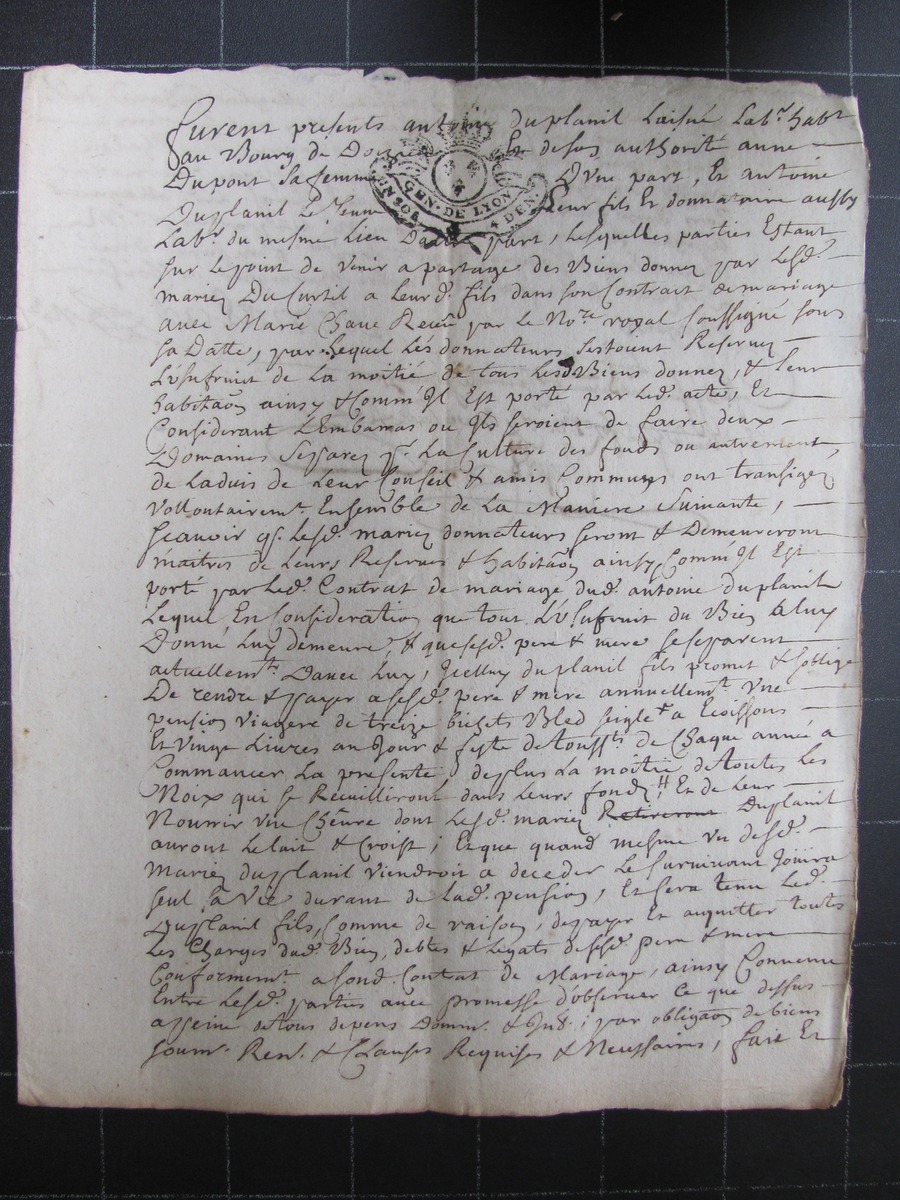 furent presents antoine duplanil Laisné Lab.r habt
au Bourg de Et de son authorité anne
Dupont sa femme D'une part, Et antoine
GEN · DE LYON
Duplanil Le Jeune Leur fils Et donnataire aussy
Lab.r du mesme Lieu Dautre part, Lesquelles parties Estant
sur le point de venir a partage des Biens donnez par lesd.
mariez Du Curtil a Leurd. fils dans son Contrat de mariage
avec Marie Chave Receu par le No.re royal soussigné sous
sa Datte, par Lequel Les donnateurs s'estoient Reservez
L'usufruit de La moitié de tous Lesd Biens donnez, & leur
habitaon ainsy & Comm' Jl Est porté par Led. acte, Et
Considerant L'Embarras ou Jls seroient de faire deux
Domaines separez p.r La Culture des fonds ou autrement,
de Ladvis de Leur Conseil & amis Communs ont transigez
Vollontairem.t Ensemble de La Maniere Suivante,
scavoir q. Lesd. mariez donnateurs seront & Demeureront
maitres de Leurs Reserves & habitaon ainsy Comm' Jl Est
porté par Led. Contrat de mariage dud. antoine duplanil
Lequel En Consideration que tout L'Usufruit du Bien a luy
Donné Luy demeure, & que sesd. pere & mere se separent
actuellem.t D'avec Luy, Jcelluy duplanil fils promet & s'oblige
De rendre & payer a sesd. pere & mere annuellem.t Une
pension viagere de treize bichets Bled seigle a
Et Vingt Livres au Jour & feste de Touss.ts de Chaque année a
Commancer La presente, de plus La moitié de toutes Les
Noix qui se Recuilliront dans Leurs fonds Et de Leur
Nourrir une Chevre dont Lesd. mariez Duplanil
auront Le lait & Croist; Et que quand mesme un desd.
Mariez duplanil Viendroit a deceder Le survivant Joüira
seul sa Vie durant de Lad. pension, Et sera tenu Led.
Duplanil fils, Comme de raison, de payer Et acquitter toutes
Les Charges dud. Bien, debtes & Legats desd. pere & mere
Conformem.t a sond. Contrat de Mariage, ainsy Convenu
Entre Lesd. parties avec promesse d'observer Ce que dessus
a peine de tous depens Domm. & Int. ; par obligaon de biens
soum. Ren. & Clauses Requises & Necessaires, fait Et